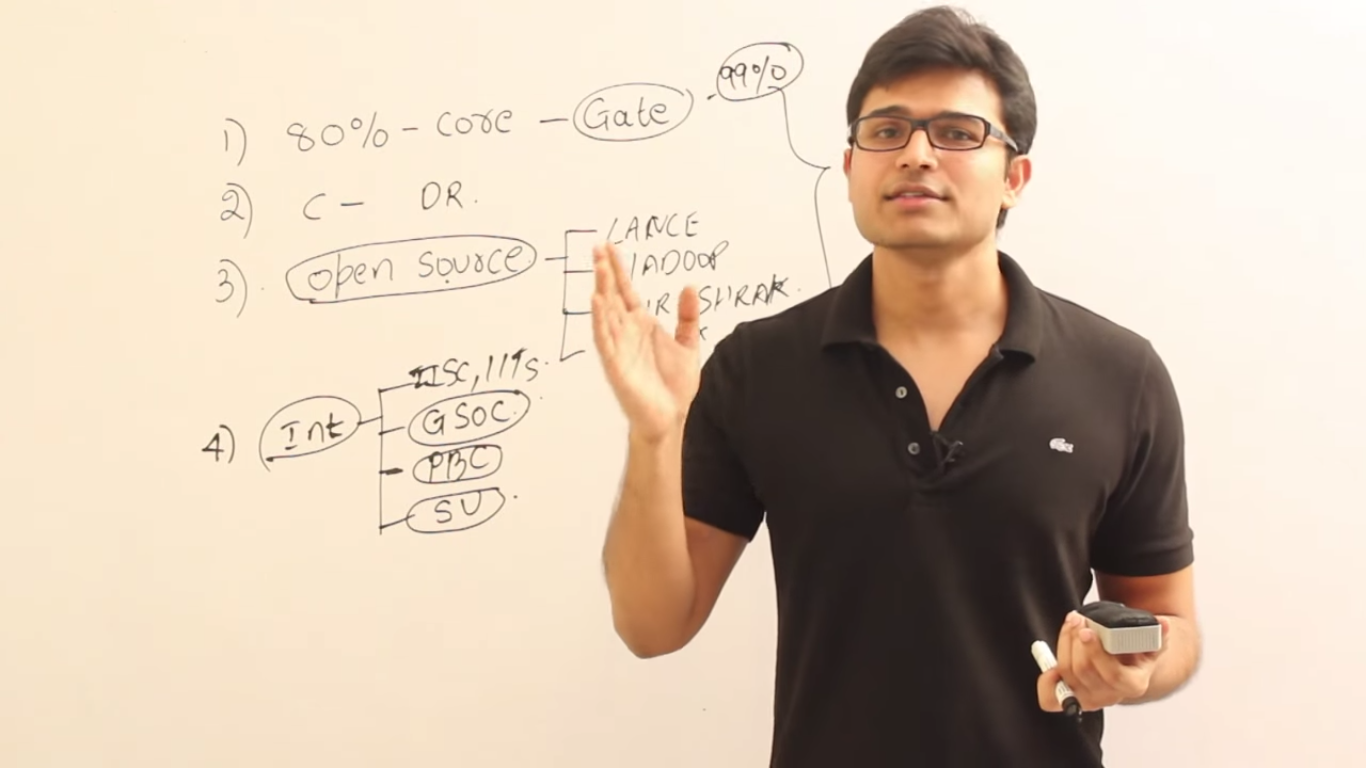 1) 80% - core - Gate . 99%
2) C - DR.
3). open source
LANCE
HADOOP
SHRAK.
4) Int
IISC, IITs.
GSOC.
PBC
SU